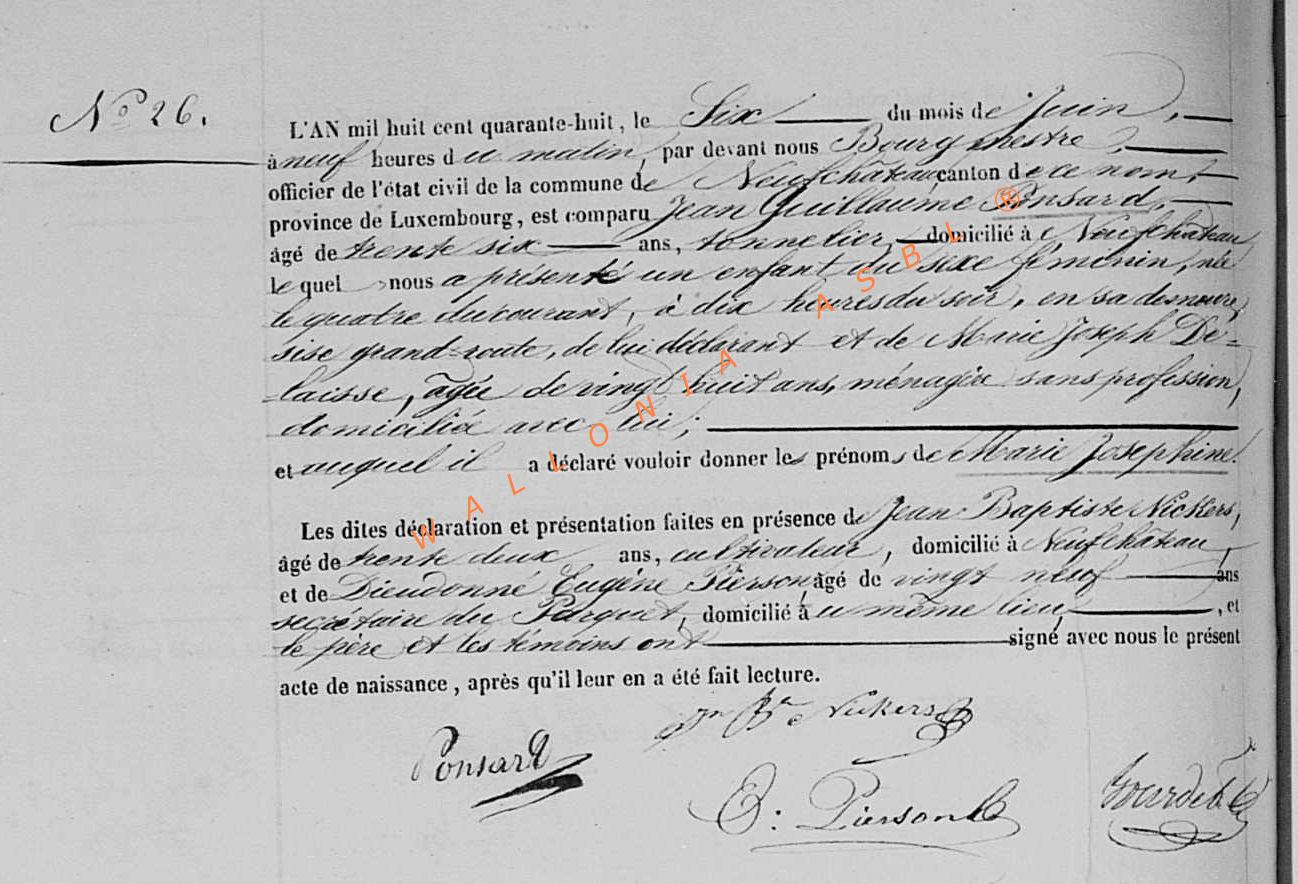 No 26.
L'AN mil huit cent quarante-huit, le Six du mois de Juin,
à neuf heures du matin, par devant nous Bourgmestre,
officier de l'état civil de la commune de Neufchâteau, canton de ce nom,
province de Luxembourg, est comparu Jean Guillaume Ponsard,
âgé de trente six ans, tonnelier, domicilié à Neufchâteau,
le quel nous a présenté un enfant du sexe féminin, né
le quatre du courant, à dix heures du soir, en sa demeure,
sise grand-route, de lui déclarant et de Marie Joseph De-
laisse, agée de vingt huit ans, ménagère sans profession,
domiciliée avec lui;
et auquel il a déclaré vouloir donner les prénoms de Marie Josephine.
Les dites déclaration et présentation faites en présence de Jean Baptiste Nickers,
âgé de trente deux ans, cultivateur, domicilié à Neufchâteau,
et de Dieudonné Eugène Pierson, âgé de vingt neuf ans
secrétaire du Parquet, domicilié au même lieu, et
le père et les témoins ont signé avec nous le présent
acte de naissance, après qu'il leur en a été fait lecture.
Jn Bte Nickers
Ponsard
E: Pierson
WALLONIA ASBL ®